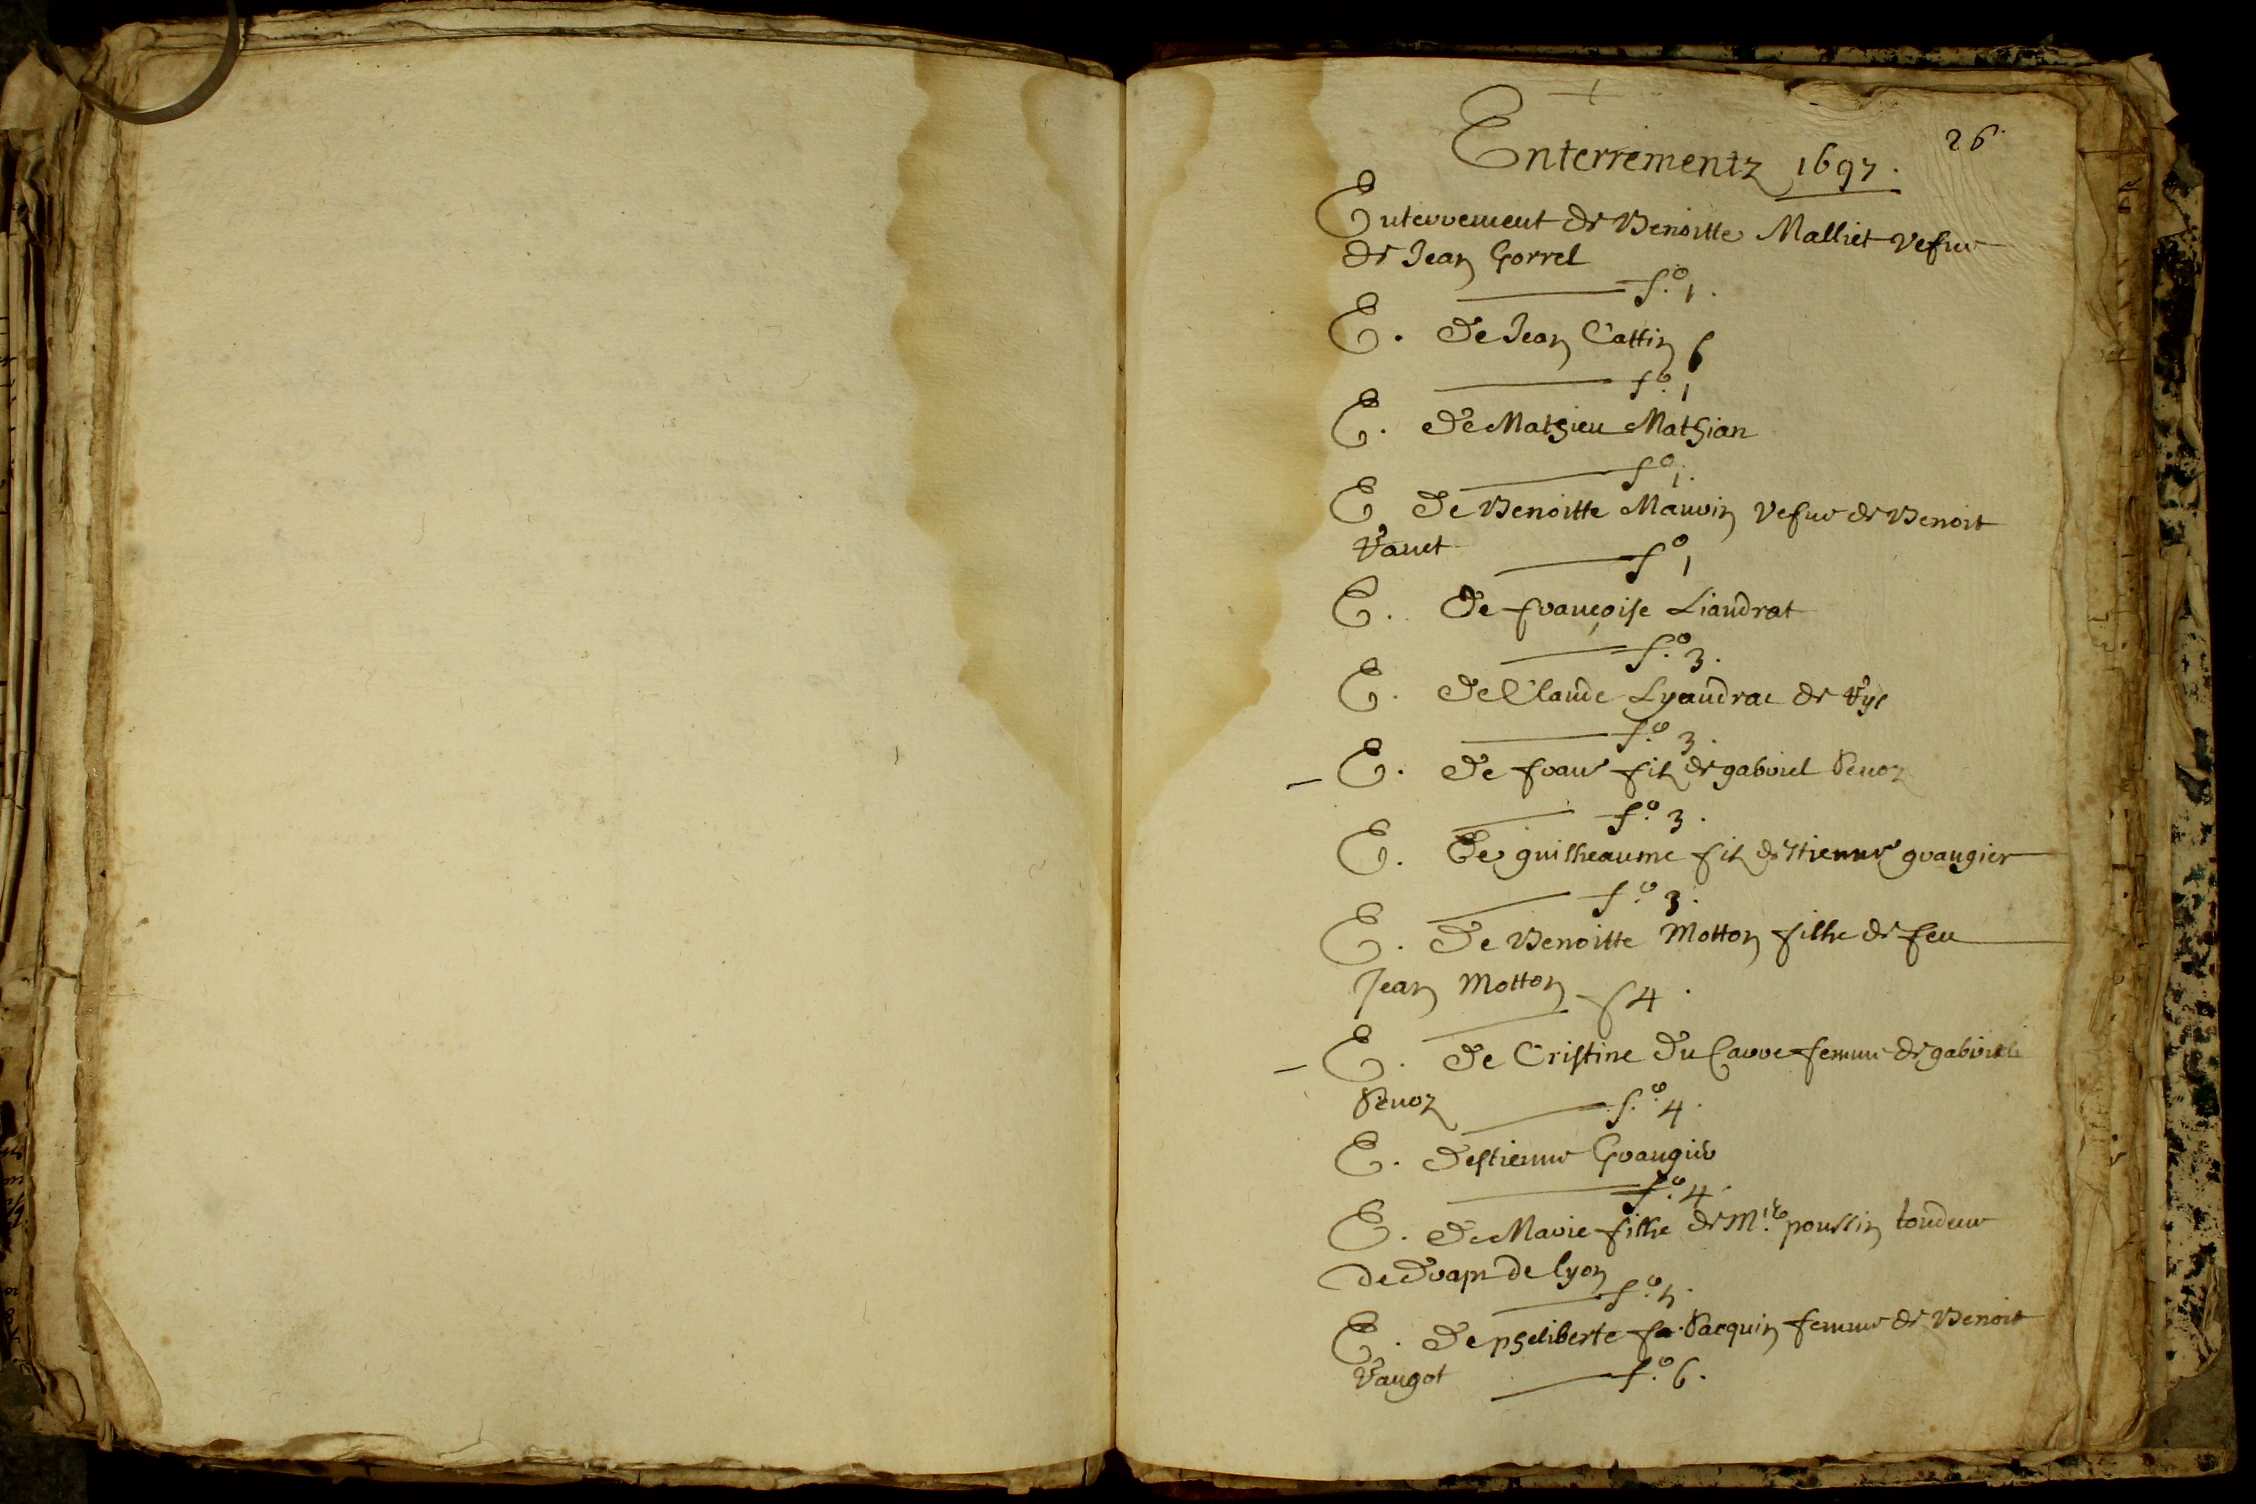 26.
Enterrementz 1697.
Enterrement de Benoitte Malliet vefue
de Jean Gorrel
f.° 1.
E. de Jean Cattin
f.° 1
E. de Mathieu Mathian
f.° 1.
E de Benoitte Mauvin vefue de Benoit
f.° 1
E. de françoise Liandrat
f.° 3.
E. de Claude Lyandrat de
f.° 3.
E. de fran filz de gabriel
f.° 3.
E. de guilheaume filz destienne grangier
f.° 3.
E. de Benoitte Motton filhe de feu
Jean Motton f 4.
E. de Cristine du Carre femme de gabriel
f.° 4.
E. destienne Grangier
f.° 4
E. de Marie filhe de M.re poussin tondeur
de drapz de lyon
f.°
E. de philiberte femme de Benoit
Vaugot f.° 6.